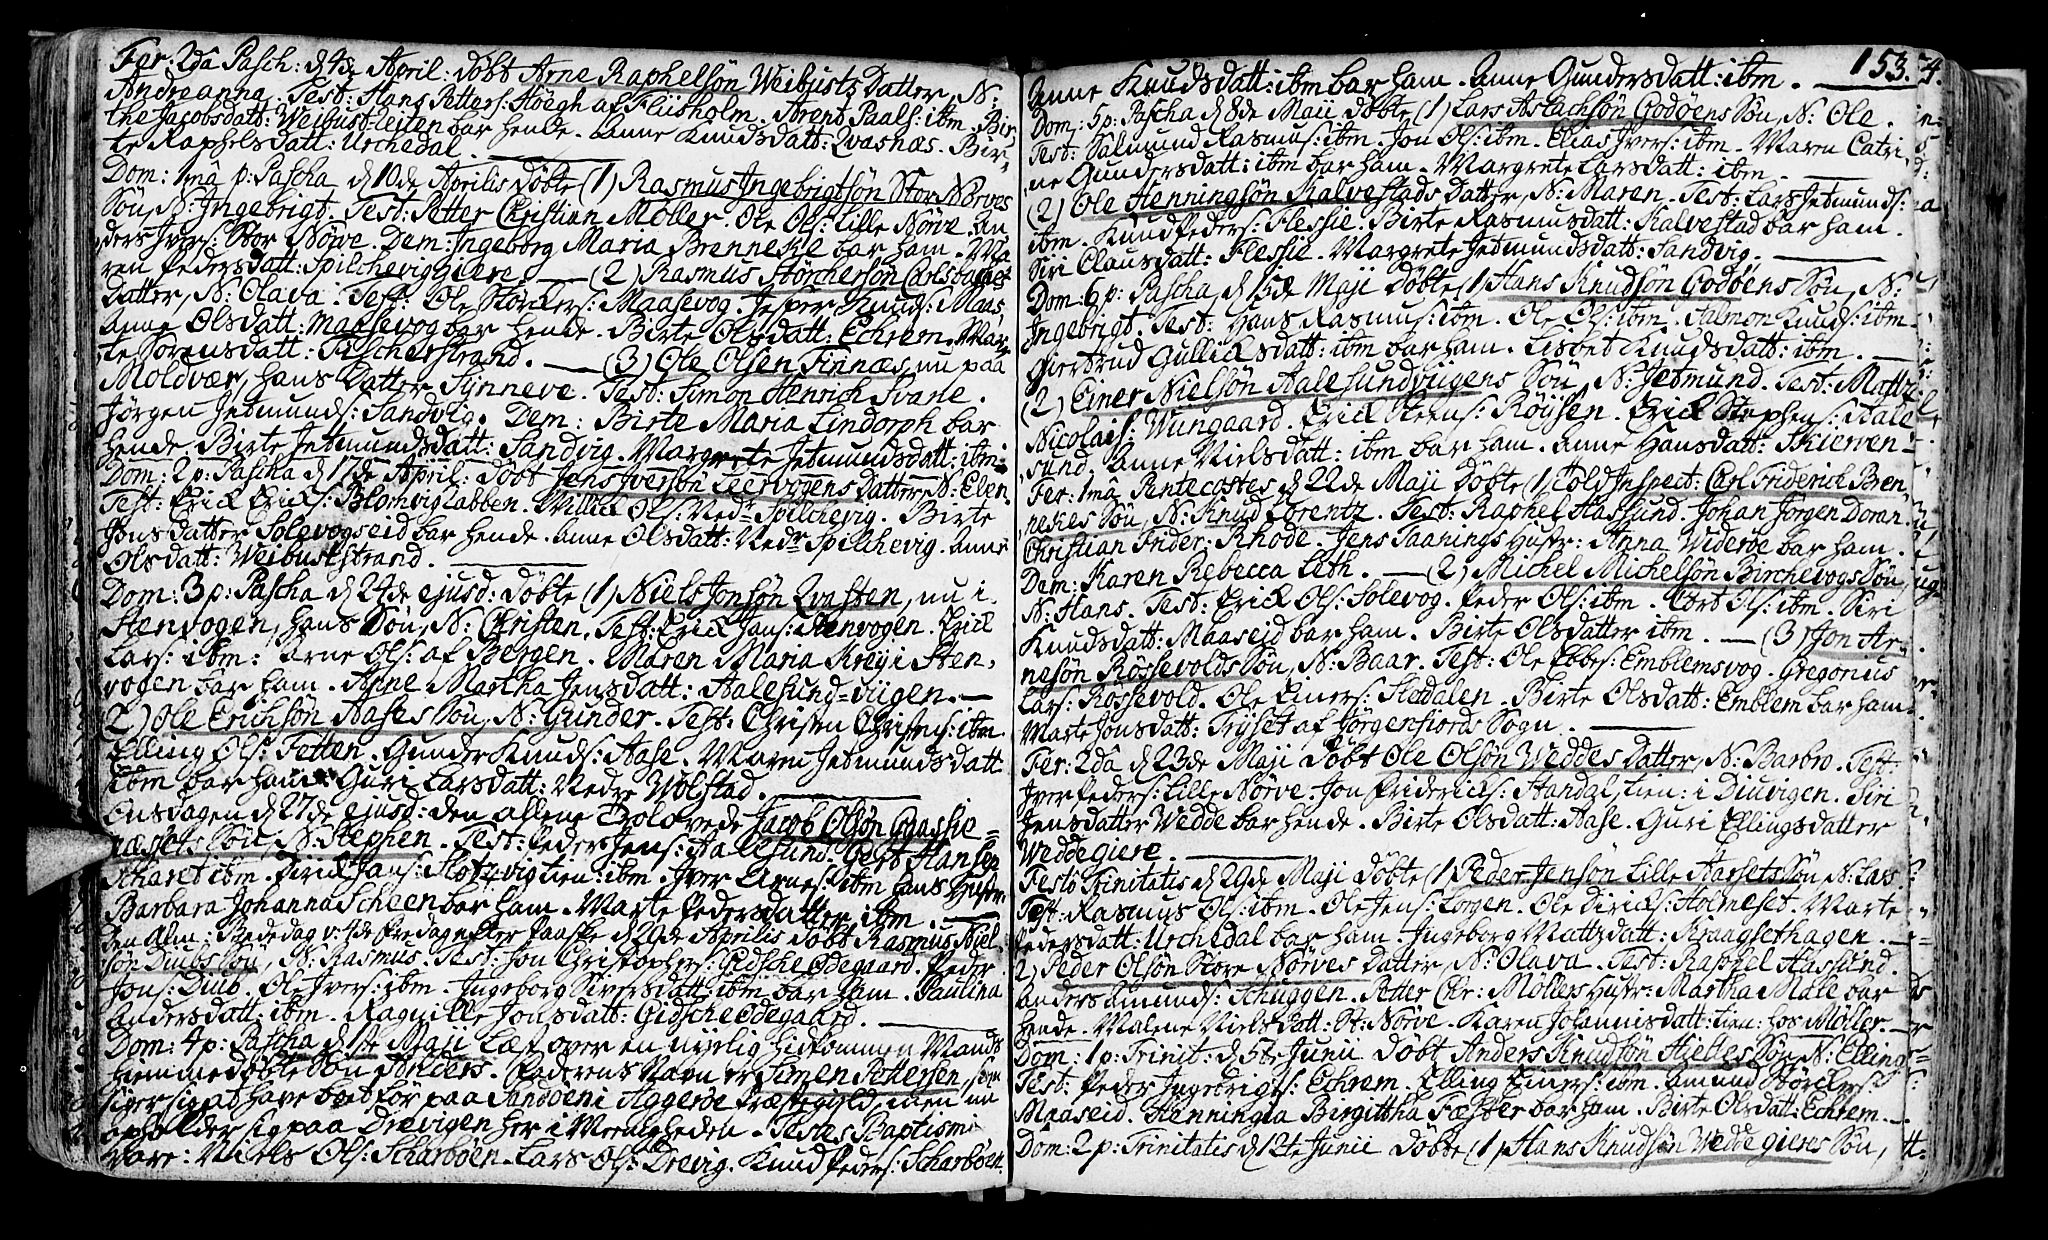 Fer: 2da Pasch: d 4de April: döbt Arne Raphelsön Weibusts Datter, N:
Andreanna. Test: Hans Petters: Höegh af Fliisholm. Arent Paals: ibm. Bir-
the Jacobsdatt: Weibust-leiten bar hende. Anne Knudsdatt: Qvasnæs. Bir-
te Raphelsdatt: Urchedal.
Dom: 1mâ p: Pascha d 10de Aprilis döbte (1) Rasmus Ingebrigtsön Stor Nörves
Sön, N: Ingebrigt. Test: Petter Christian Möller. Ole Ols: Lille Nörve. An
ders Ivers: Stor Nörve. Dem: Ingeborg Maria Brenneske bar ham. Ma
ren Pedersdatt: Spilcheviggiere. (2) Rasmus Störchersön
Datter, N: Olava. Test: Ole Störkers: Maasevog. Jesper Knuds: Maas,
Anne Olsdatt: Maasevog bar hende. Birte Olsdatt: Echrem. Mar
te Sörensdatt: Fischerstrand. (3) Ole Olsen Finnæs, nu paa
Moldvær, hans Datter Synneve. Test: Simon Henrich Svarle.
Jörgen Jetmunds: Sandvig. Dem: Birte Maria Lindorph bar
hende. Birte Jetmundsdatt: Sandvig. Margrete Jetmundsdatt: ibm.
Dom: 2 p: Pascha d 17de April: döbt Jens Iversön Leervogens Datter, N: Elen.
Test: Erick Ericks: Blomvigzabben. Willick Ols: Nedr Spilchevig. Birte
Jonsdatter Solevogseid bar hende. Anne Olsdatt: Nedr Spilchevig. Anne
Olsdatt: Weibuststrand.
Dom: 3 p: Pascha d 24de ejusd: döbte (1) Niels Jonsön Qvasten, nu i
Stenvogen, hans Sön, N: Christen. Test: Erick Jans: Stenvogen. Erick
Lars: ibm: Arne Ols: af Bergen. Maren Maria Krey i Sten,
vogen bar ham. Anne Martha Jensdatt: Aalesund=viigen.
2) Ole Erichsön Aases Sön, N: Gunder. Test: Christen Christens: ibm
Elling Ols: Fetten. Gunder Knuds: Aase. Maren Jetmundsdatt
ibm bar ham. Guri Larsdatt: Nedre Wolstad.
Onsdagen d 27de ejusd: den allene Dolovede Jacob Olsön
Sön, N: Stephen. Test: Peder Jens: Aalesund. Gert Hansen
Scharet ibm. Dirick Jans: tien: ibm. Iver Arnes: ibm hans Hustr:
Barbara Johanna Scheen bar ham. Marte Pedersdatter ibm.
Den Alm: Bededag v: 4de Fredag efter Paaske d 29de Aprilis döbt Rasmus Niel
sön Duubs Sön, N: Rasmus. Test: Jon Christophers: Gidsche Ödegaard. Peder
Jons: Duub. Ole Ivers: ibm. Ingeborg Siversdatt: ibm bar ham. Paulina
Andersdatt: ibm. Ragnille Jonsdatt: Gidsche Ödegaard.
Dom: 4 p: Pascha d 1ste Maji Læst over en nyelig hidkommen Mands
hiemmedöbte Sön Anders. Faderens Navn er Simen Pettersen, som
siger sig at have boet för paa Sandöen i Aggeröe Præstegield, men nu
opholder sig paa Drevigen her i Menigheden. Testes Baptismi
vare: Niels Ols: Scharböen. Lars Ols: Drevig. Knud Peders: Scharböen.
153.
Anne Knudsdatt: ibm bar ham. Anne Gundersdatt: ibm.
Dom: 5 p: Pascha d 8de Maji döbte (1) Lars Aslachsön Godöens Sön, N: Ole.
Test: Salmund Rasmus: ibm. Jon Ols: ibm. Elias Ivers: ibm. Maren Catri,
ne Gundersdatt: ibm bar ham. Margrete Larsdatt: ibm.
(2) Ole Henningsön Kalvestads Datter, N: Maren. Test: Lars Jetmunds:
ibm. Knud Peders: Flessie. Birte Rasmusdatt: Kalvestad bar ham.
Siri Clausdatt: Flessie. Margrete Jetmundsdatt: Sandvig.
Dom: 6 p: Pascha, d 15de Maji döbte (1 Hans Knudsön Godöens Sön, N:
Ingebrigt. Test: Hans Rasmus: ibm. Ole Ols: ibm. Salmon Knuds: ibm.
Giertrud Gullicksdatt: ibm bar ham. Lisbet Knudsdatt: ibm.
(2) Einer Nielsön Aalesundviigens Sön, N: Jetmund. Test: Mattz
Nicolais: Wungaard. Erick Steens: Röiisen. Erick Stephens: Aale
sund. Anne Nielsdatt: ibm bar ham. Anne Hansdatt: Skierven-
Fer: 1mâ Pentecostes d 22de Maji döbte (1 Told Inspect: Carl Friderich Bren,
nekes Sön, N: Knud Lorentz. Test: Raphel Aasund. Johan Jörgen Doran
Christian Frider: Rhode. Jens Taanings Hustr: Anna Wideröe bar ham.
Dem: Karen Rebecca Leth. (2) Michel Michelsön Birchevogs Sön
N: Hans. Test: Erick Ols: Solevog. Peder Ols: ibm. Cort Ols: ibm. Siri
Knudsdatt: Maaseid bar ham. Birte Olsdatter ibm. (3) Jon Ar-
nesön Rössevolds Sön, N: Baar. Test: Ole Ebbes: Emblemsvog. Gregorius
Lars: Rossevold. Ole Einers: Flodalen. Birte Olsdatt: Emblem bar ham
Marte Jonsdatt: Tryset af Jörgenfiords Sogn.
Fer: 2dâ d 23de Maji döbt Ole Olsön Weddes Datter, N: Barbro. Test:
Iver Peders: Lille Nörve. Jon Fridericks: Standal, tien: i Diuvigen. Siri
Jensdatter Wedde bar hende. Birte Olsdatt: Aase. Guri Ellingsdatter
Weddegiere.
Festo Trinitatis d 29de Maji döbte (1 Peder Jensön Lille Aarsets Sön N: Lars
Test: Rasmus Ols: ibm. Ole Jens: Lorgen. Ole Diricks: Holmeset. Marte
Pedersdatt: Urchedal bar ham. Ingeborg Mattzdatt: Kraagsethagen.
2) Peder Olsön Store Nörves Datter, N: Olava. Test: Raphel Aasund.
Anders Amunds: Schuggen. Petter Chr: Möllers Hustr: Martha Male bar
hende. Malene Nielsdatt: St: Nörve. Karen Johannisdatt: tien: hos Möller.
Dom: 1 p: Trinit: d 5te Junii döbt Anders Knudsön Hielles Sön, N: Elling
Test: Peder Ingebrigts: Echrem. Elling Einers: ibm. Amund Störckers:
Maaseid. Henningia Birgittha Fæster bar ham. Birte Olsdatt: Echrem.
Dom: 2 p: Trinitatis d 12te Junii döbte (1) Hans Knudsön Weddegieres Sön,